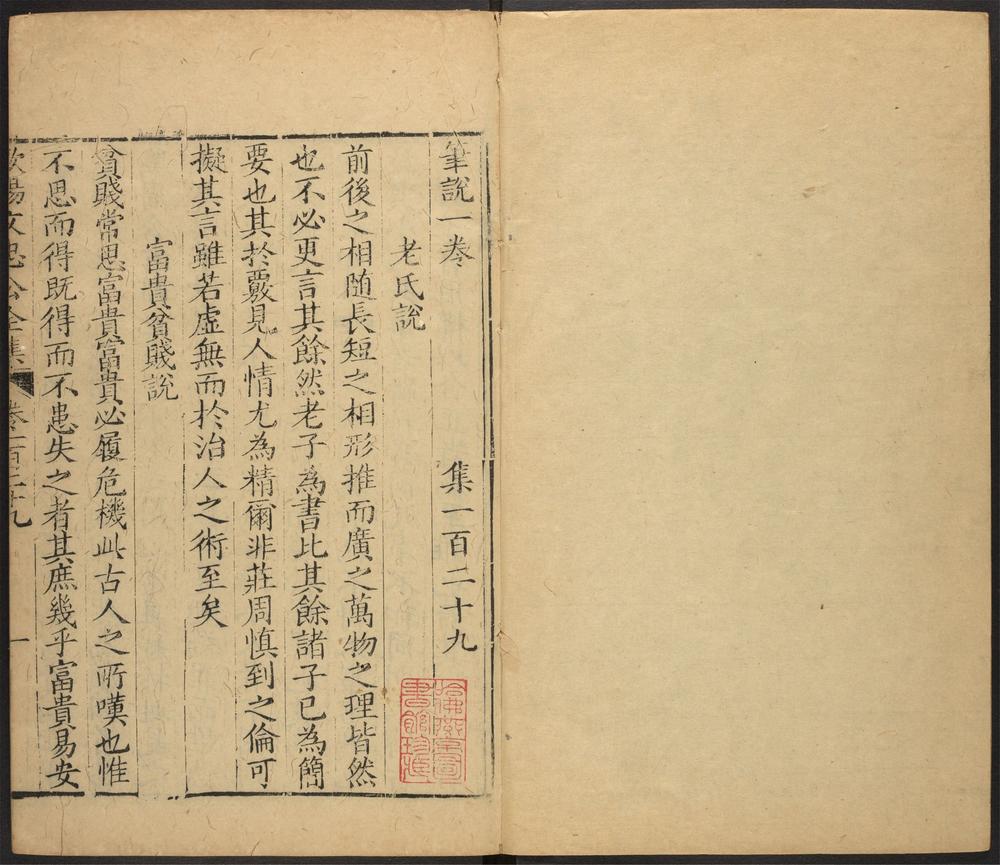 筆說一卷 集一百二十九
老氏說
前後之相随長短之相形推而廣之萬物之理皆然
也不必更言其餘然老子為書比其餘諸子已為簡
要也其於覈見人情尤為精爾非莊周慎到之倫可
擬其言雖若虛無而於治人之術至矣
富貴貧賤說
貧賤常思富貴富貴必履危機此古人之所嘆也惟
不思而得既得而不患失之者其庶幾乎富貴易安
歐陽文忠公全集 卷一百二十九 一
哈佛燕京圖書館珍藏